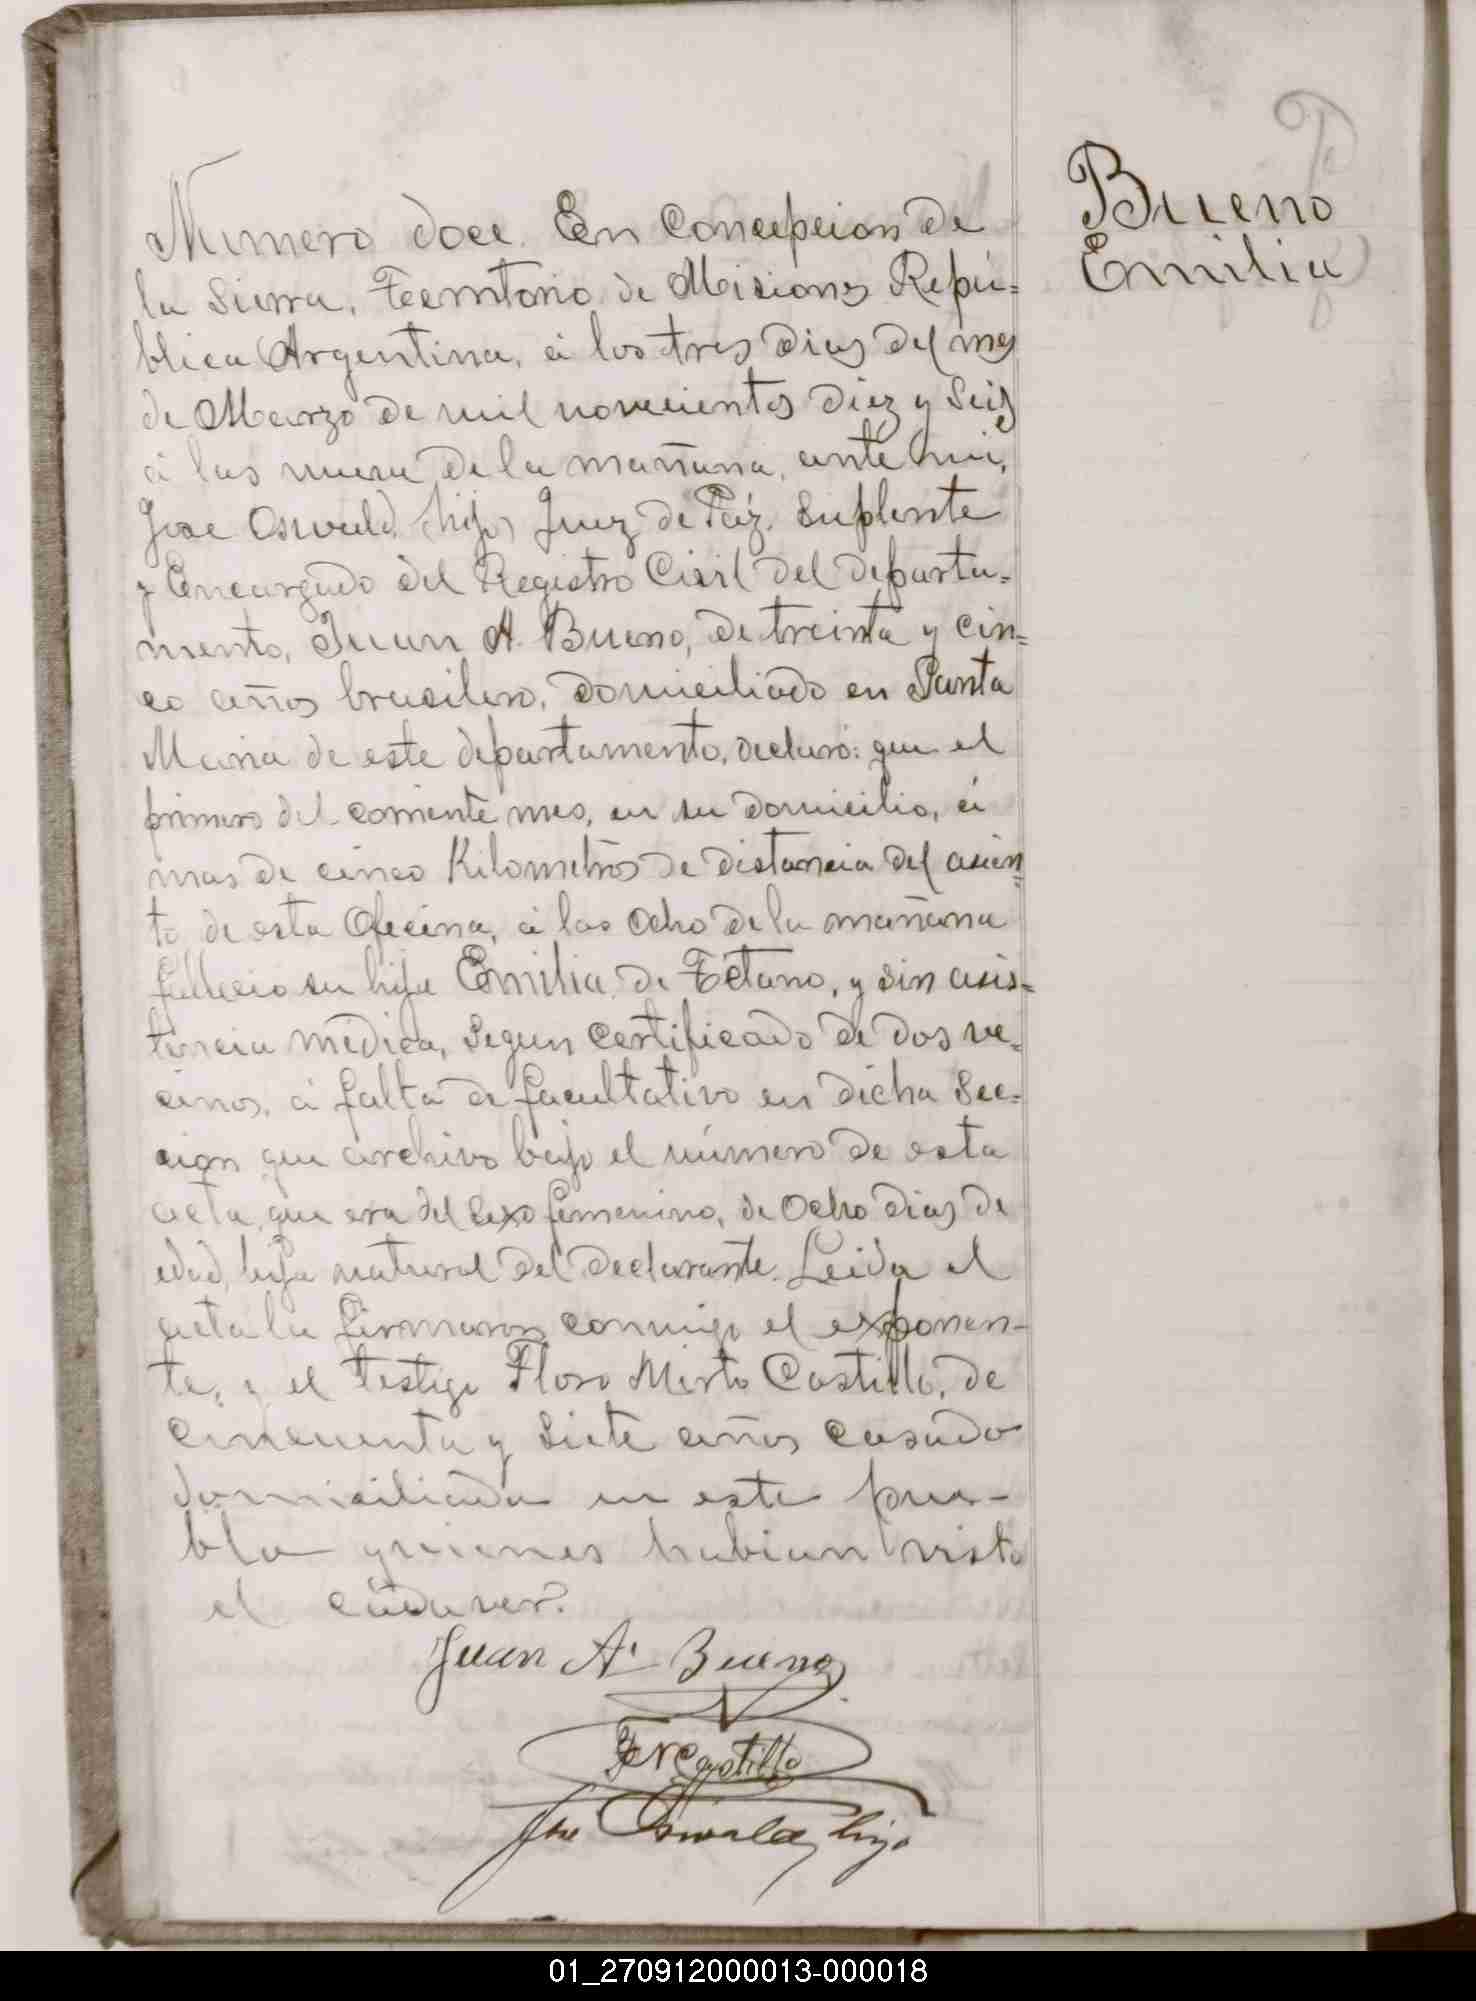 Bueno
Emilia
Numero doce. En Concepcion de
la Sierra, Territorio de Misiones Repú=
blica Argentina, á los tres dias del mes
de Marzo de mil novecientos diez y seis
á las nueve de la mañana, ante mi,
José Oswald (hijo) Juez de Páz Suplente
y Encargado del Registro Civil del departa-
mento, Juan A. Bueno, de treinta y cin=
co años brasilero, domiciliado en Santa
Maria de este departamento, declaró: que el
primero del corriente mes, en su domicilio, á
mas de cinco Kilometros de distancia del asien=
to de esta Oficina, á las Ocho de la mañana
falleció su hija Emilia de Tétano, y sin asis=
tencia médica, segun certificado de dos ve=
cinos, á falta de facultativo en dicha Sec=
cion que archivo bajo el número de esta
acta, que era del sexo femenino, de Ocho dias de
edad, hija natural del declarante. Leida el
acta la firmaron conmigo el exponen-
te, y el testigo Floro Mirto Castillo, de
cincuenta y siete años casado
domiciliado en este pue-
blo quienes habian visto
el cádaver.
Juan A. Bueno
José Oswald hijo
01_270912000013-000018